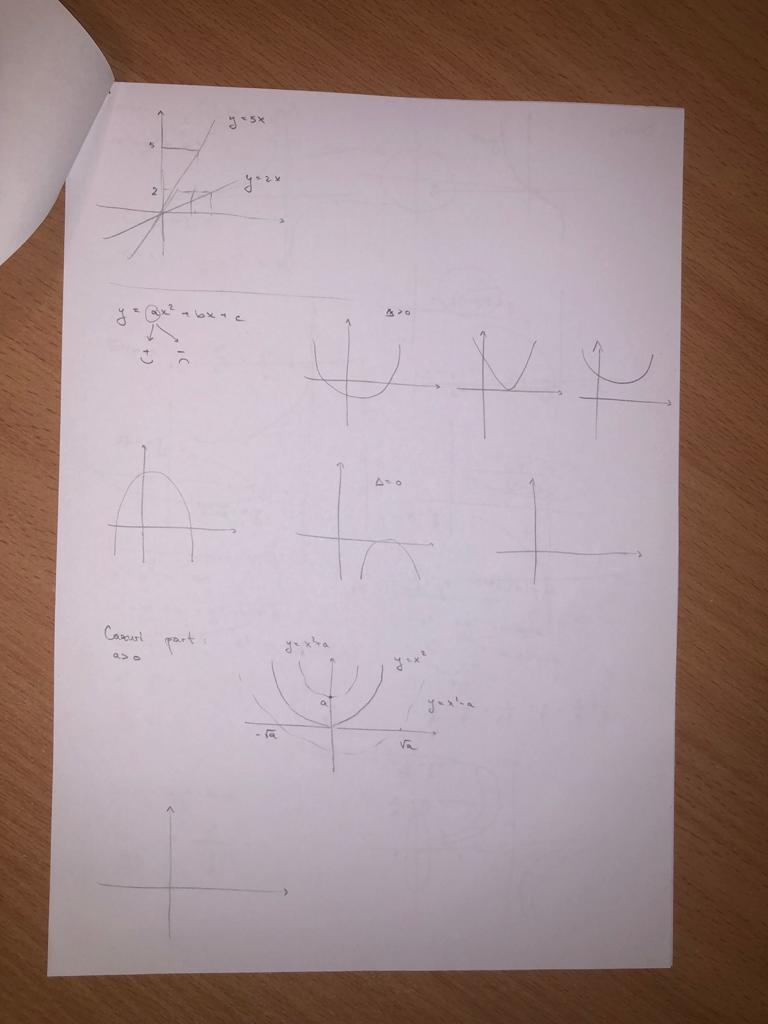 y = 5x
5
y = 2x
2
y = ax² + bx + c
+ -
Δ > 0
Δ = 0
Cazuri part:
a > 0
y = x² + a
y = x²
a
y = x² - a
-√a
√a